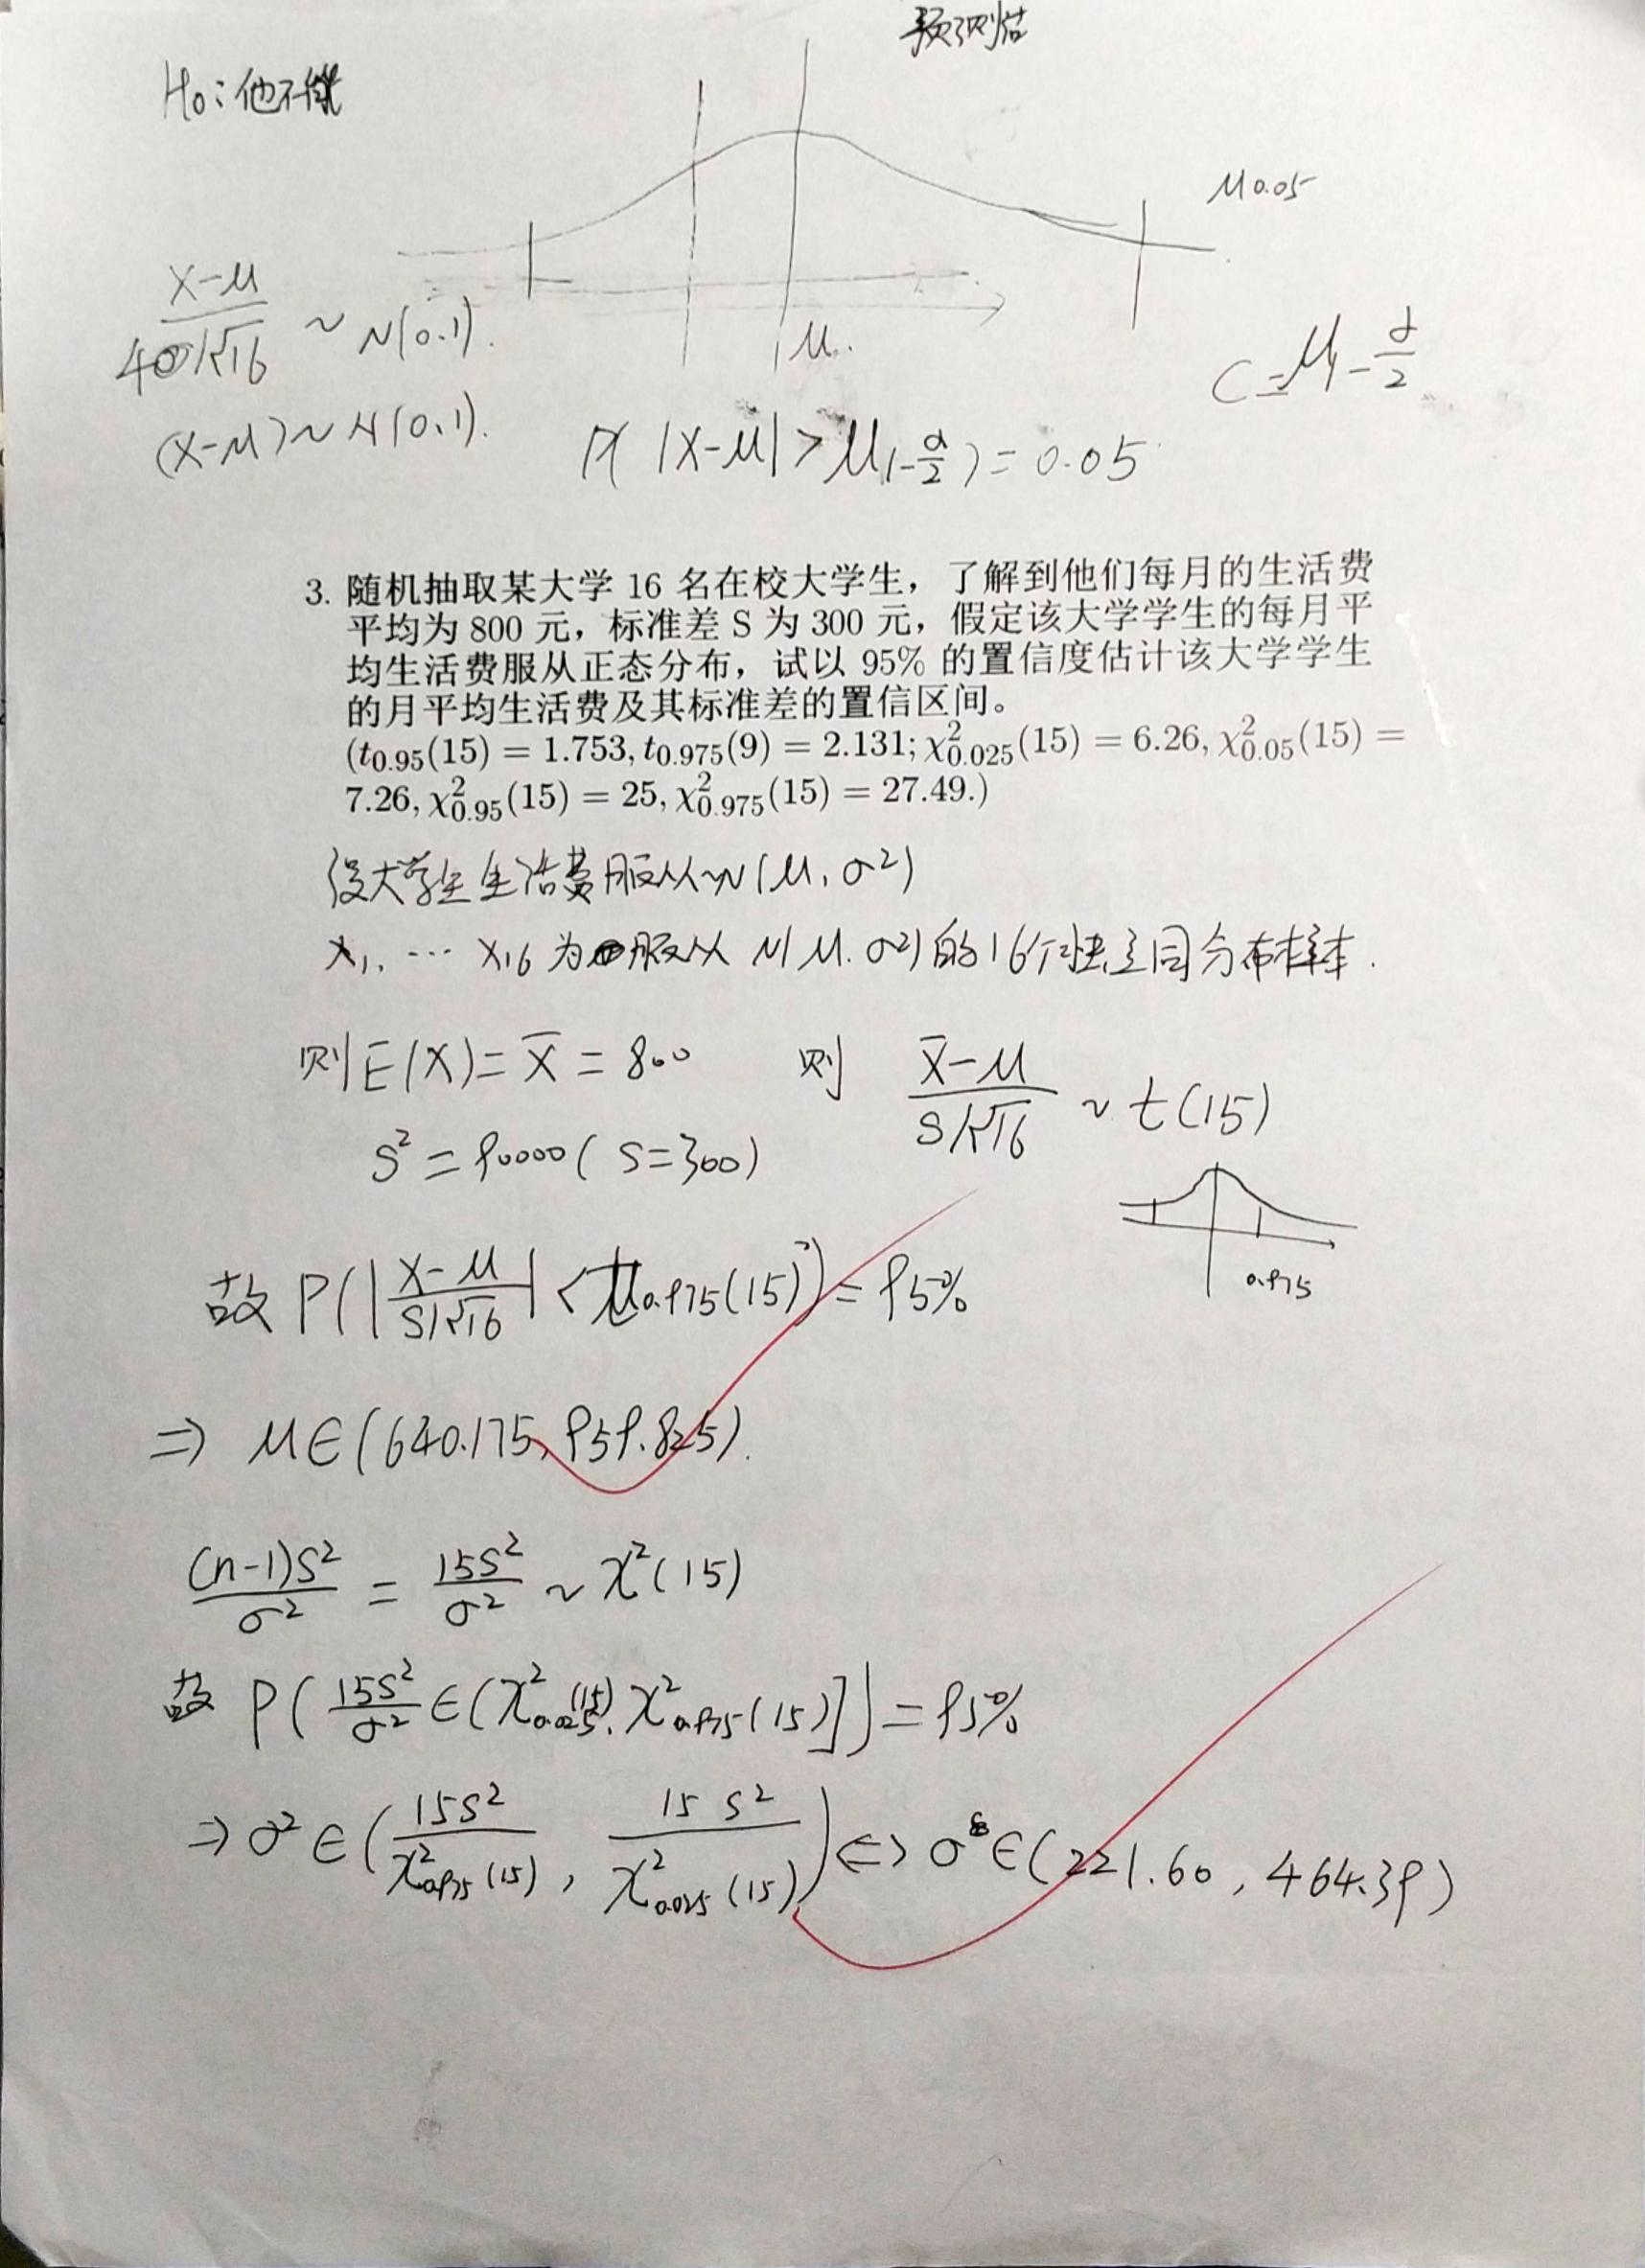 预测估
H₀:他不能
μ0.05
X-μ / 40/√16 ~ N(0.1).
μ.
C=μ1-α/2
(X-μ)~N(0,1).
P(|X-μ|>μ1-α/2)=0.05
3. 随机抽取某大学 16 名在校大学生，了解到他们每月的生活费
平均为 800 元，标准差 S 为 300 元，假定该大学学生的每月平
均生活费服从正态分布，试以 95% 的置信度估计该大学学生
的月平均生活费及其标准差的置信区间。
(t0.95(15) = 1.753, t0.975(9) = 2.131; χ²0.025(15) = 6.26, χ²0.05(15) =
7.26, χ²0.95(15) = 25, χ²0.975(15) = 27.49.)
设大学生生活费服从~N(μ,σ²)
X1,…X16为服从N(μ.σ²)的16个独立同分布样本.
则E(X)=X̄=800 则 X̄-μ / S/√16 ~ t(15)
S²=90000(S=300)
0.975
故P(|X-μ / S/√16|<t0.975(15))=95%
⇒ μ∈(640.175,959.825).
(n-1)S²/σ² = 15S²/σ² ~ χ²(15)
故 P(15S²/σ²∈(χ²0.025(15),χ²0.975(15)])=95%
⇒σ²∈(15S²/χ²0.975(15), 15S²/χ²0.025(15))⇔σ∈(221.60,464.39)